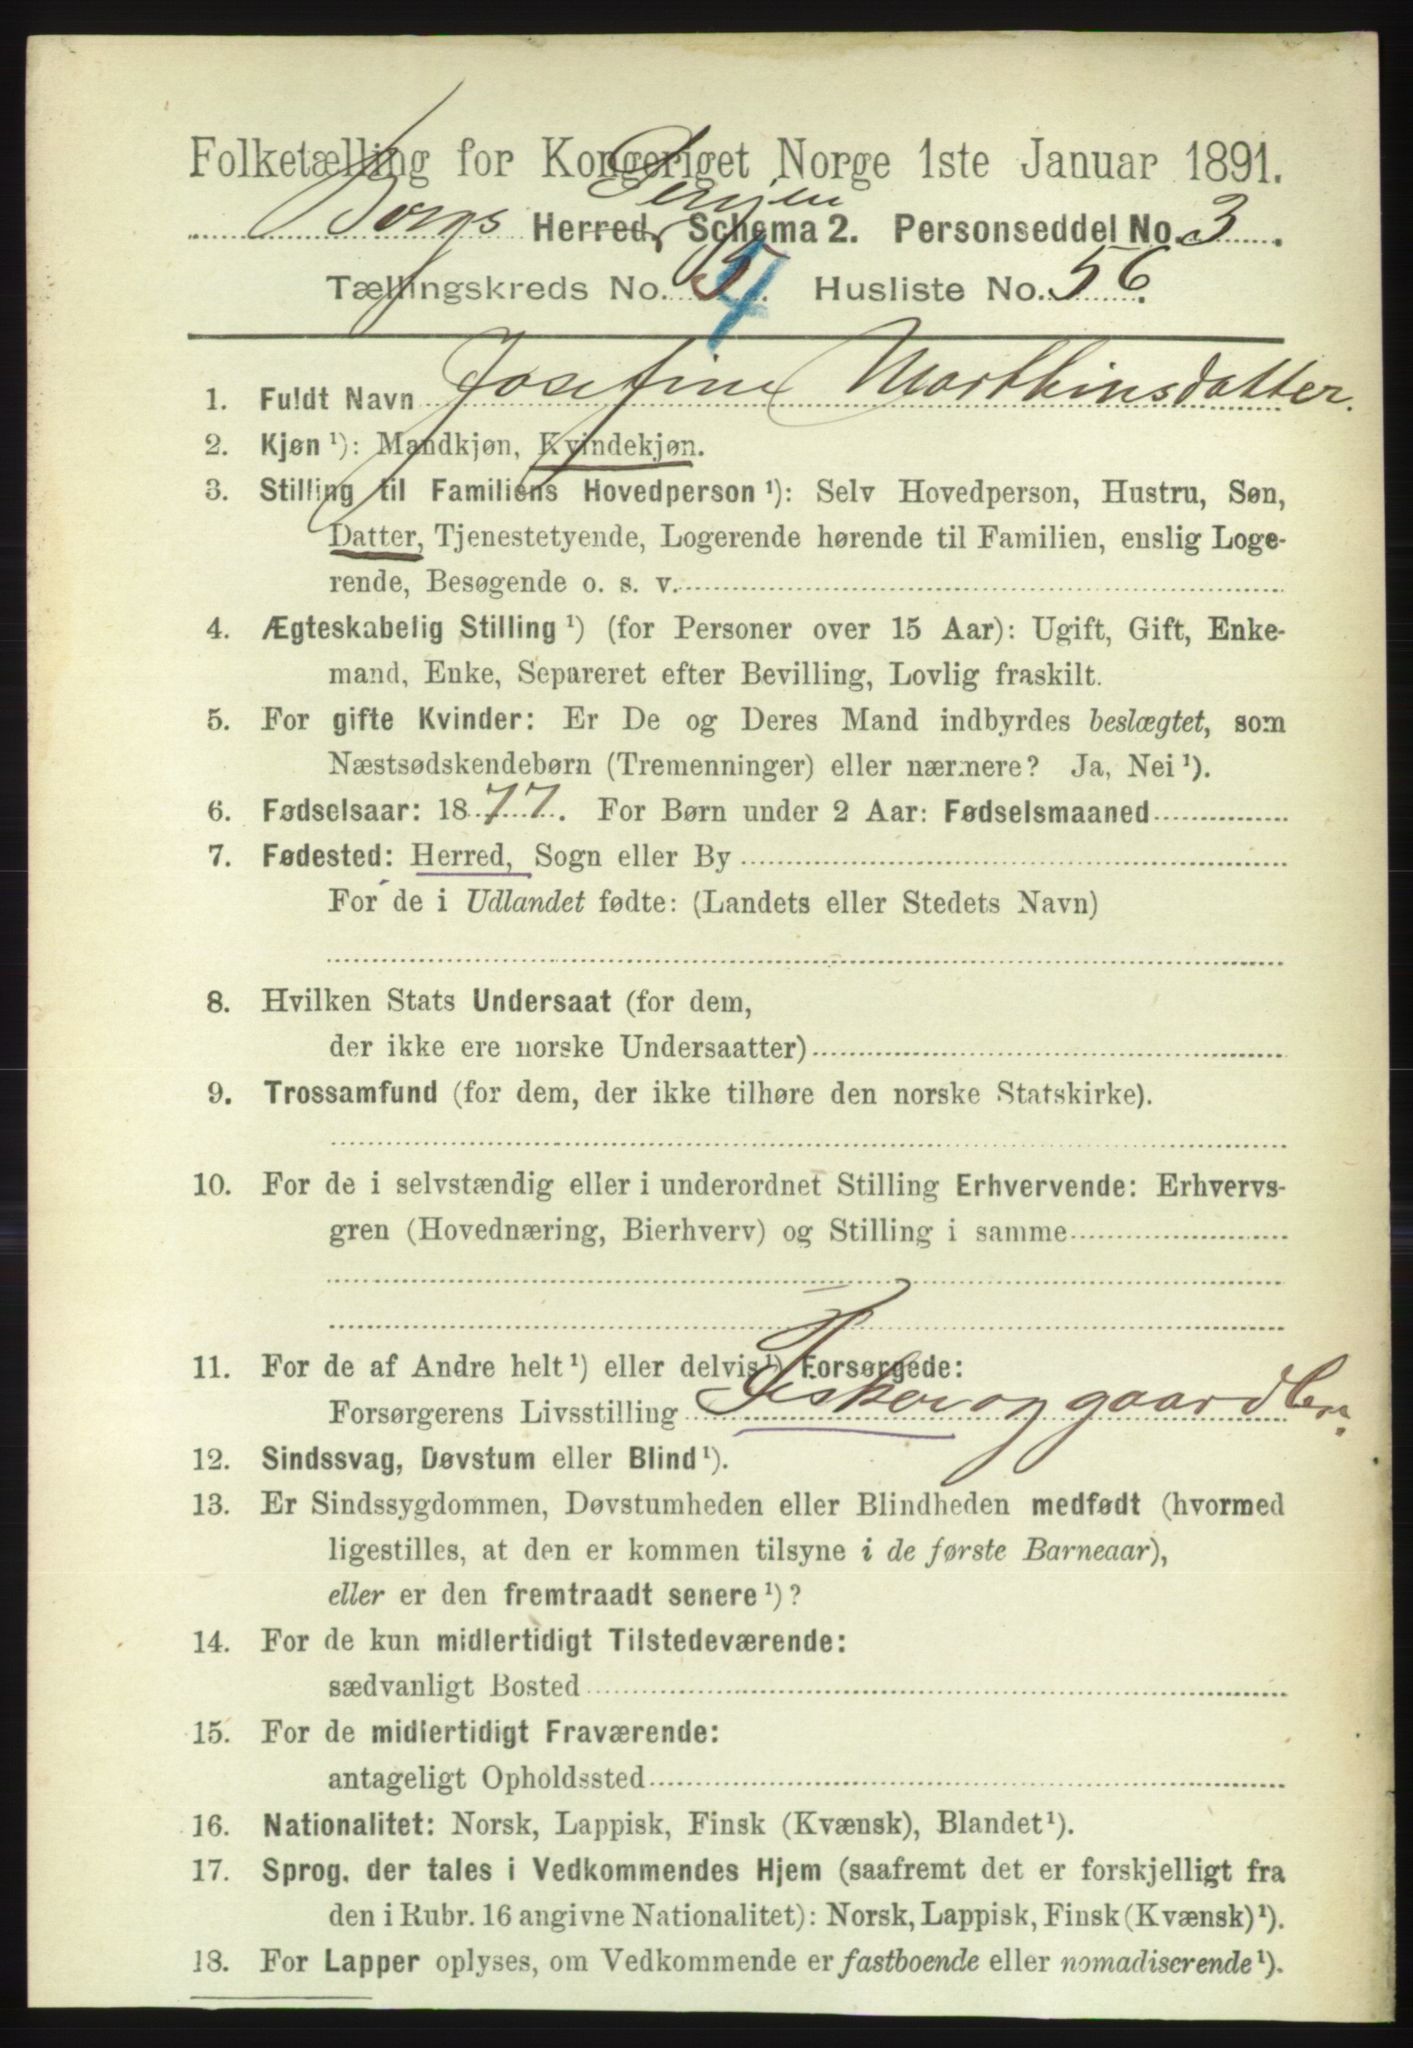 Folketælling for Kongeriget Norge 1ste Januar 1891.
Borgs Herred, Schema 2. Personseddel No. 3.
Tællingskreds No. 5. 4 Husliste No. 56.
1. Fuldt Navn Josefine Marthinsdatter.
2. Kjøn ¹): Mandkjøn, Kvindekjøn.
3. Stilling til Familiens Hovedperson ¹): Selv Hovedperson, Hustru, Søn,
Datter, Tjenestetyende, Logerende hørende til Familien, enslig Loge-
rende, Besøgende o. s. v.
4. Ægteskabelig Stilling ¹) (for Personer over 15 Aar): Ugift, Gift, Enke-
mand, Enke, Separeret efter Bevilling, Lovlig fraskilt.
5. For gifte Kvinder: Er De og Deres Mand indbyrdes beslægtet, som
Næstsødskendebørn (Tremenninger) eller nærmere? Ja, Nei ¹).
6. Fødselsaar: 1877. For Børn under 2 Aar: Fødselsmaaned
7. Fødested: Herred, Sogn eller By
For de i Udlandet fødte: (Landets eller Stedets Navn)
8. Hvilken Stats Undersaat (for dem,
der ikke ere norske Undersaatter)
9. Trossamfund (for dem, der ikke tilhøre den norske Statskirke).
10. For de i selvstændig eller i underordnet Stilling Erhvervende: Erhvervs-
gren (Hovednæring, Bierhverv) og Stilling i samme
11. For de af Andre helt ¹) eller delvis ¹) Forsørgede:
Forsørgerens Livsstilling Fisker og gaardbr.
12. Sindssvag, Døvstum eller Blind ¹).
13. Er Sindssygdommen, Døvstumheden eller Blindheden medfødt (hvormed
ligestilles, at den er kommen tilsyne i de første Barneaar),
eller er den fremtraadt senere ¹)?
14. For de kun midlertidigt Tilstedeværende:
sædvanligt Bosted
15. For de midlertidigt Fraværende:
antageligt Opholdssted
16. Nationalitet: Norsk, Lappisk, Finsk (Kvænsk), Blandet ¹).
17. Sprog, der tales i Vedkommendes Hjem (saafremt det er forskjelligt fra
den i Rubr. 16 angivne Nationalitet): Norsk, Lappisk, Finsk (Kvænsk) ¹).
18. For Lapper oplyses, om Vedkommende er fastboende eller nomadiserende ¹).